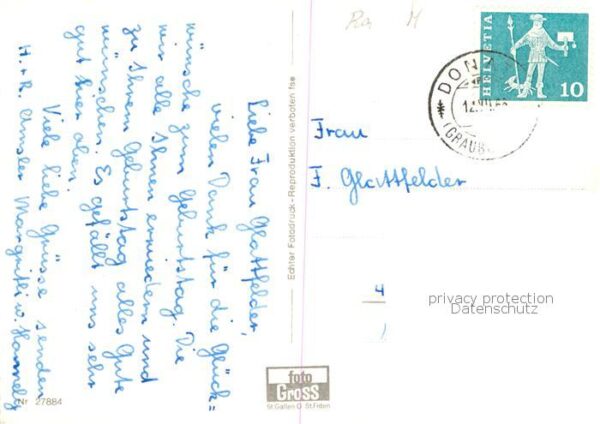 Ra M
HELVETIA
10
DONA
12.VII.
(GRAUB
Liebe Frau Glattfelder,
vielen Dank für die Glück=
wünsche zum Geburtstag. Die
wir alle Ihnen erwiedern und
zu Ihrem Geburtstag alles Gute
wünschen. Es gefällt uns sehr
gut hier oben.
Viele liebe Grüsse senden
H. + R. Amsler Margritli u. Hanneli
Frau
F. Glattfelder
4
Echter Fotodruck - Reproduktion verboten
foto
Gross
St. Gallen O St. Fiden
Nr. 27884
privacy protection
Datenschutz